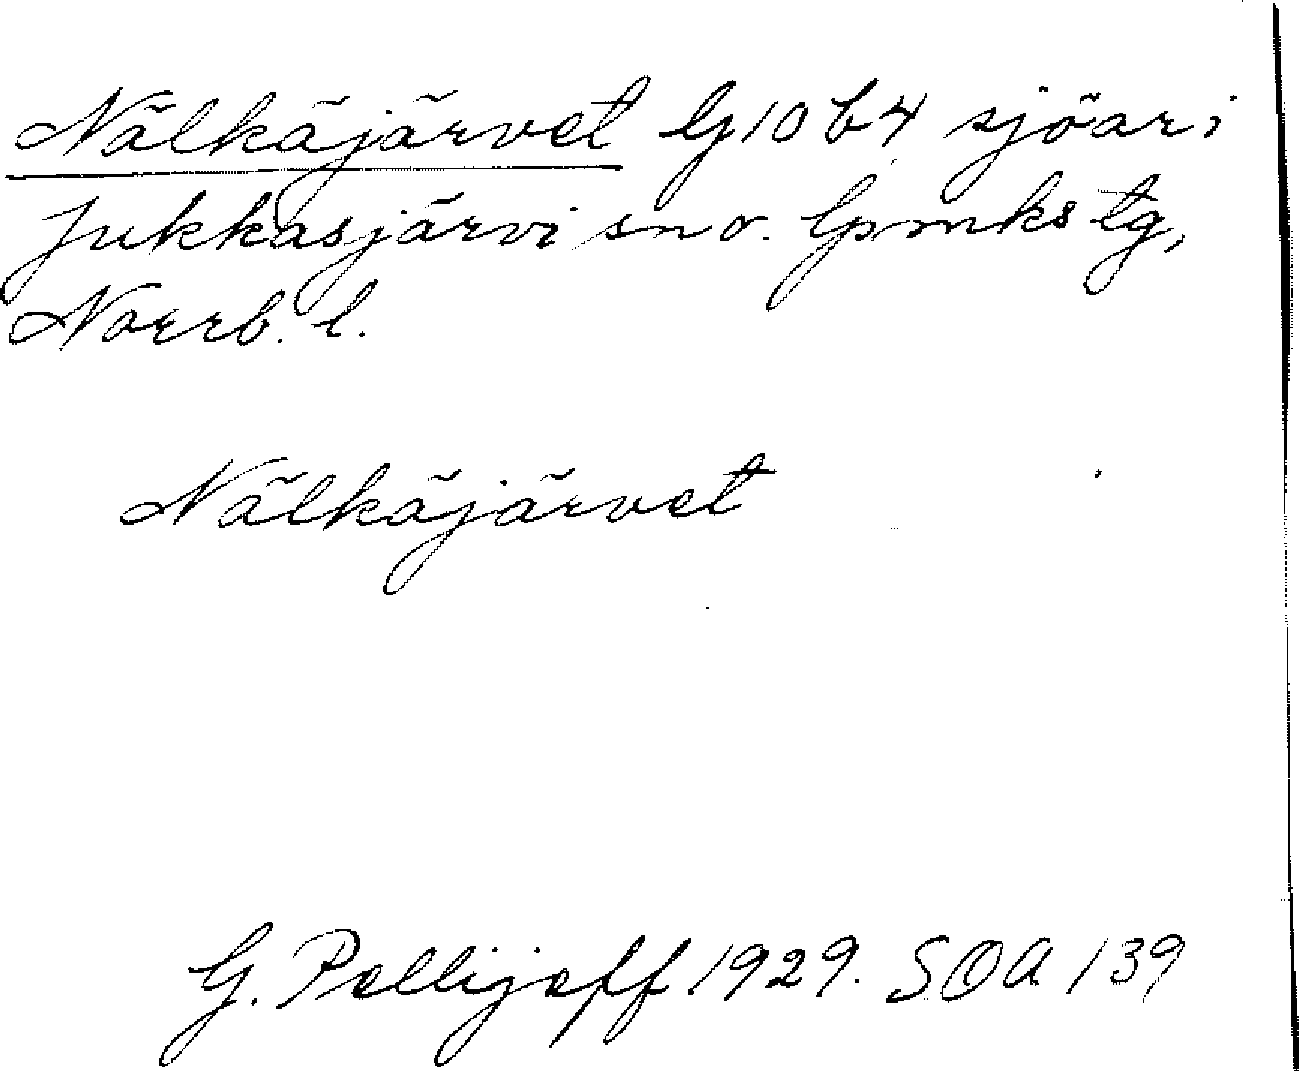 Nälkäjärvet G10b4 sjöar i
Jukkasjärvi sn o. lpmks tg,
Norrb. l.
Nälkäjärvet
G. Pellijeff 1929. SOA 139